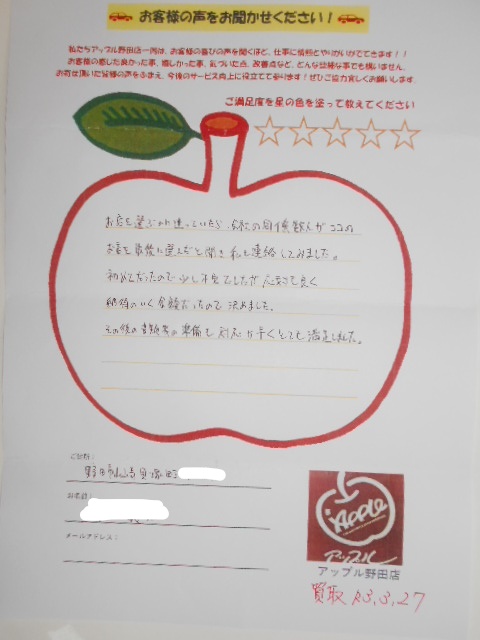 お客様の声をお聞かせください！
私たちアップル野田店一同は、お客様の喜びの声を聞くほど、仕事に情熱とやりがいがでてきます！！
お客様の感じた良かった事、嬉しかった事、気づいた点、改善点など、どんな些細な事でも構いません。
お寄せ頂いた皆様の声をふまえ、今後のサービス向上に役立てて参ります！ぜひご協力宜しくお願いします。
ご満足度を星の色を塗って教えてください
お店を選ぶのに迷っていたら、会社の同僚数人がココの
お店を最後に選んだと聞き私も連絡してみました。
初めてだったので少し不安でしたが 応対も良く
納得のいく金額だったので 決めました。
その後の書類等の準備も 対応が早くとても満足しました。
ご住所：
野田市山崎貝塚町
お名前：
メールアドレス：
APPLE
アップル
アップル野田店
買取 R3.3.27